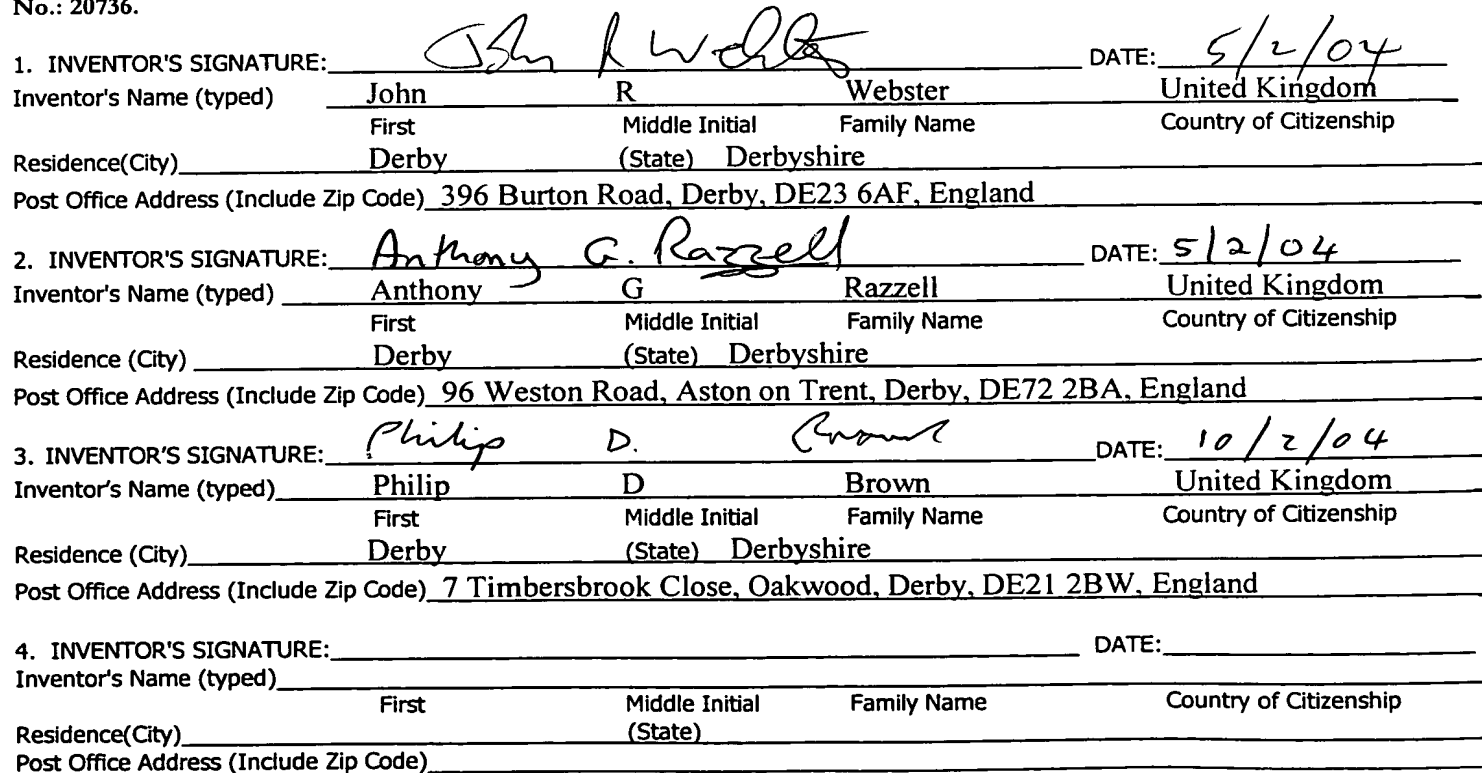 No.: 20736.
1. INVENTOR'S SIGNATURE: John R Webster DATE: 5/2/04
Inventor's Name (typed) John R Webster United Kingdom
First Middle Initial Family Name Country of Citizenship
Residence(City) Derby (State) Derbyshire
Post Office Address (Include Zip Code) 396 Burton Road, Derby, DE23 6AF, England
2. INVENTOR'S SIGNATURE: Anthony G. Razzell DATE: 5/2/04
Inventor's Name (typed) Anthony G Razzell United Kingdom
First Middle Initial Family Name Country of Citizenship
Residence (City) Derby (State) Derbyshire
Post Office Address (Include Zip Code) 96 Weston Road, Aston on Trent, Derby, DE72 2BA, England
3. INVENTOR'S SIGNATURE: Philip D. Brown DATE: 10/2/04
Inventor's Name (typed) Philip D Brown United Kingdom
First Middle Initial Family Name Country of Citizenship
Residence (City) Derby (State) Derbyshire
Post Office Address (Include Zip Code) 7 Timbersbrook Close, Oakwood, Derby, DE21 2BW, England
4. INVENTOR'S SIGNATURE: DATE:
Inventor's Name (typed)
First Middle Initial Family Name Country of Citizenship
Residence(City) (State)
Post Office Address (Include Zip Code)